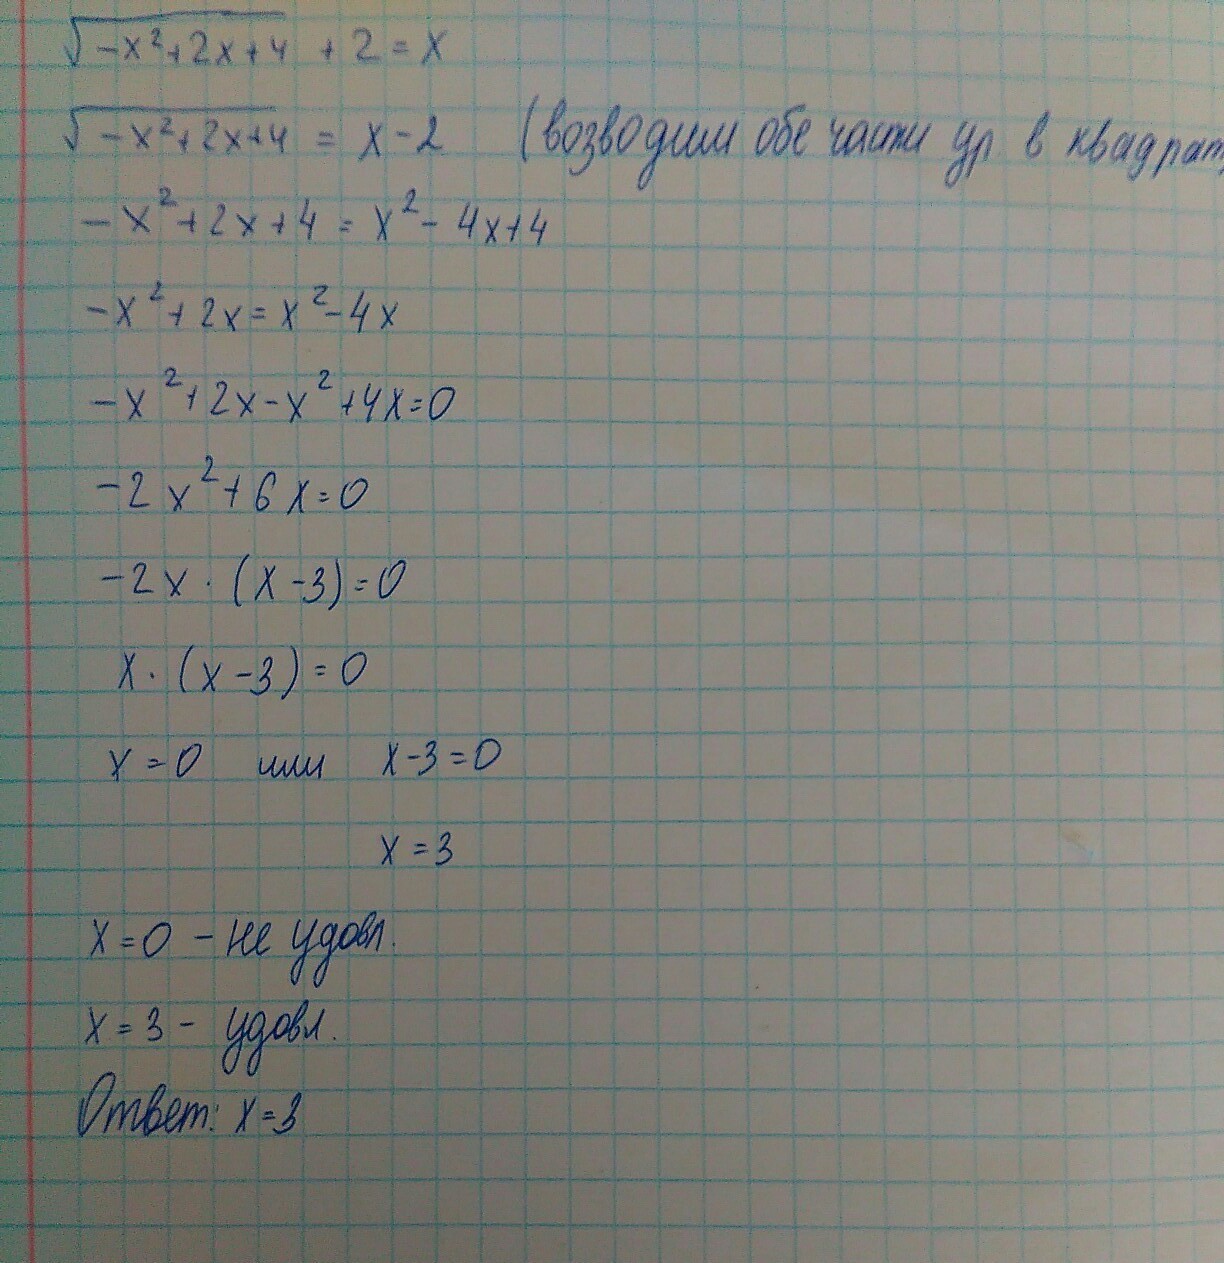 √-x²+2x+4 + 2 = x
√-x²+2x+4 = x-2 (возводим обе части ур в квадрат)
-x²+2x+4 = x²-4x+4
-x²+2x=x²-4x
-x²+2x-x²+4x=0
-2x²+6x=0
-2x·(x-3)=0
x·(x-3)=0
x=0 или x-3=0
x=3
x=0 - не удовл.
x=3 - удовл.
Ответ: x=3